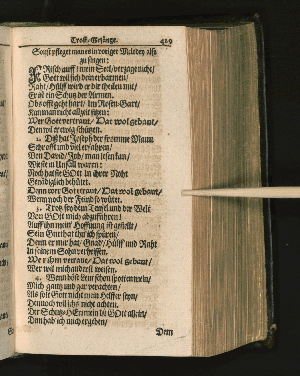 Trost-Gesänge. 419
Sonst pfleget man es in voriger Melodey also
zu singen:
FRisch auff! mein Seel/ verzage nicht/
Gott wil sich dein erbarmen/
Raht/ Hülff wird er dir theilen mit/
Er ist ein Schutz der Armen.
Obs offt geht hart/ im Rosen-Gart/
Kan man nicht allzeit sitzen:
Wer Gott vertraut/ Hat wol gebaut/
Den wil er ewig schützen.
2. Diß hat Joseph der fromme Mann
Sehr offt und viel erfahren/
Von David/ Job/ man lesen kan/
Wie sie in Unfall waren:
Noch hat sie GOtt in ihrer Noht
Genädiglich behütet.
Denn wer Gott traut/ Hat wol gebaut/
Wenn noch der Feind so wütet.
3. Trotz sey dem Teufel und der Welt
Von GOtt mich abzuführen!
Auff ihn mein Hoffnung ist gestellt/
Sein Gutthat thu ich spüren/
Denn er mir hat/ Gnad/ Hülff und Raht
In seinem Sohn verheissen.
Wer ihm vertraut/ Hat wol gebaut/
Wer wil mich anderst weisen.
4. Wenn böse Leut schon spotten mein/
Mich gantz und gar verachten/
Als solt Gott nicht mein Helffer seyn/
Dennoch wil ichs nicht achten.
Der Schutz-HErr mein ist GOtt allein/
Dem hab ich mich ergeben/
Dem